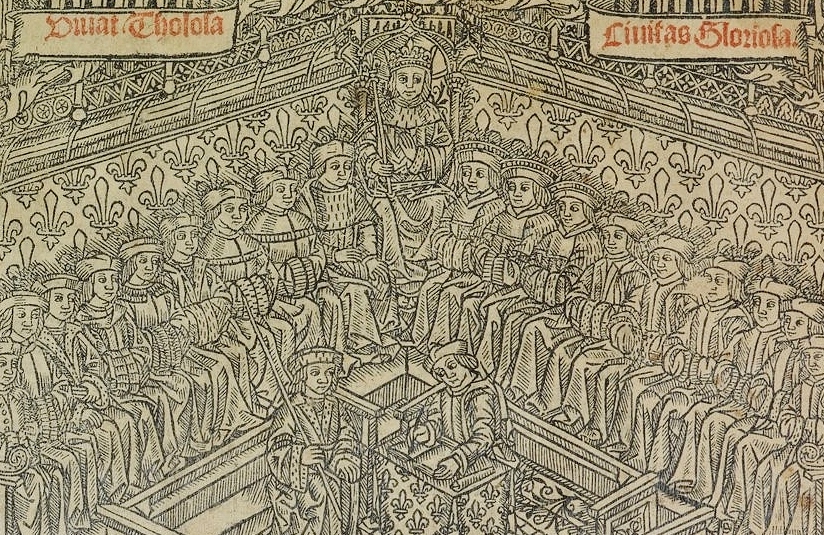 Viuat Tholosa
Ciuitas Gloriosa.